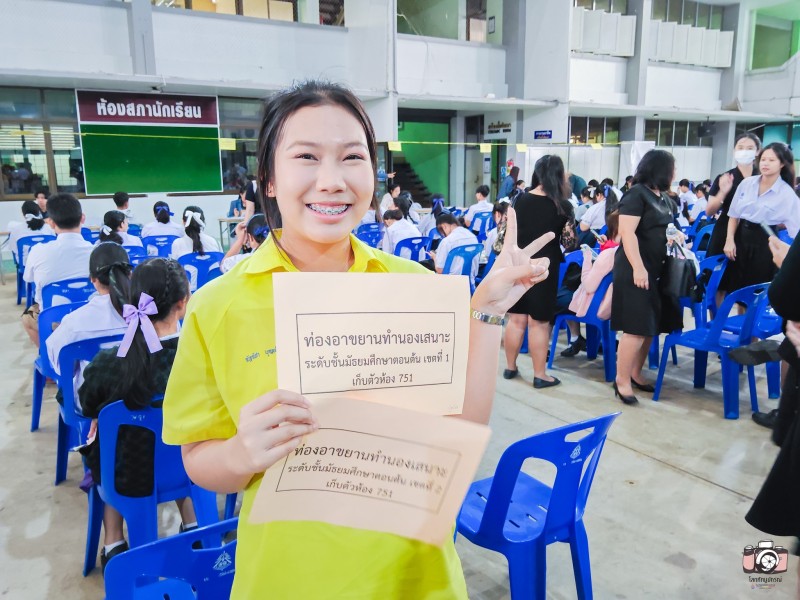 ห้องสภานักเรียน
ท่องอาขยานทำนองเสนาะ
ระดับชั้นมัธยมศึกษาตอนต้น เขตที่ 1
เก็บตัวห้อง 751
ท่องอาขยานทำนองเสนาะ
ระดับชั้นมัธยมศึกษาตอนต้น เขตที่ 2
เก็บตัวห้อง 751
โสตทัศนูปกรณ์